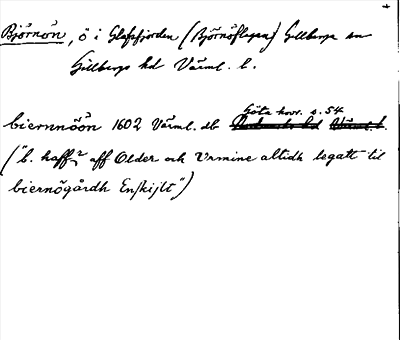 Björnön, ö i Glafsfjorden (Björnöflagan) Gillberga sn
Gillbergs hd Värml. l.
Göta hovr. s. 54
biernnöön 1602 Värml. db
("b. haffr aff Older och Vrminne altidh legatt til
biernögårdh Enskijlt")